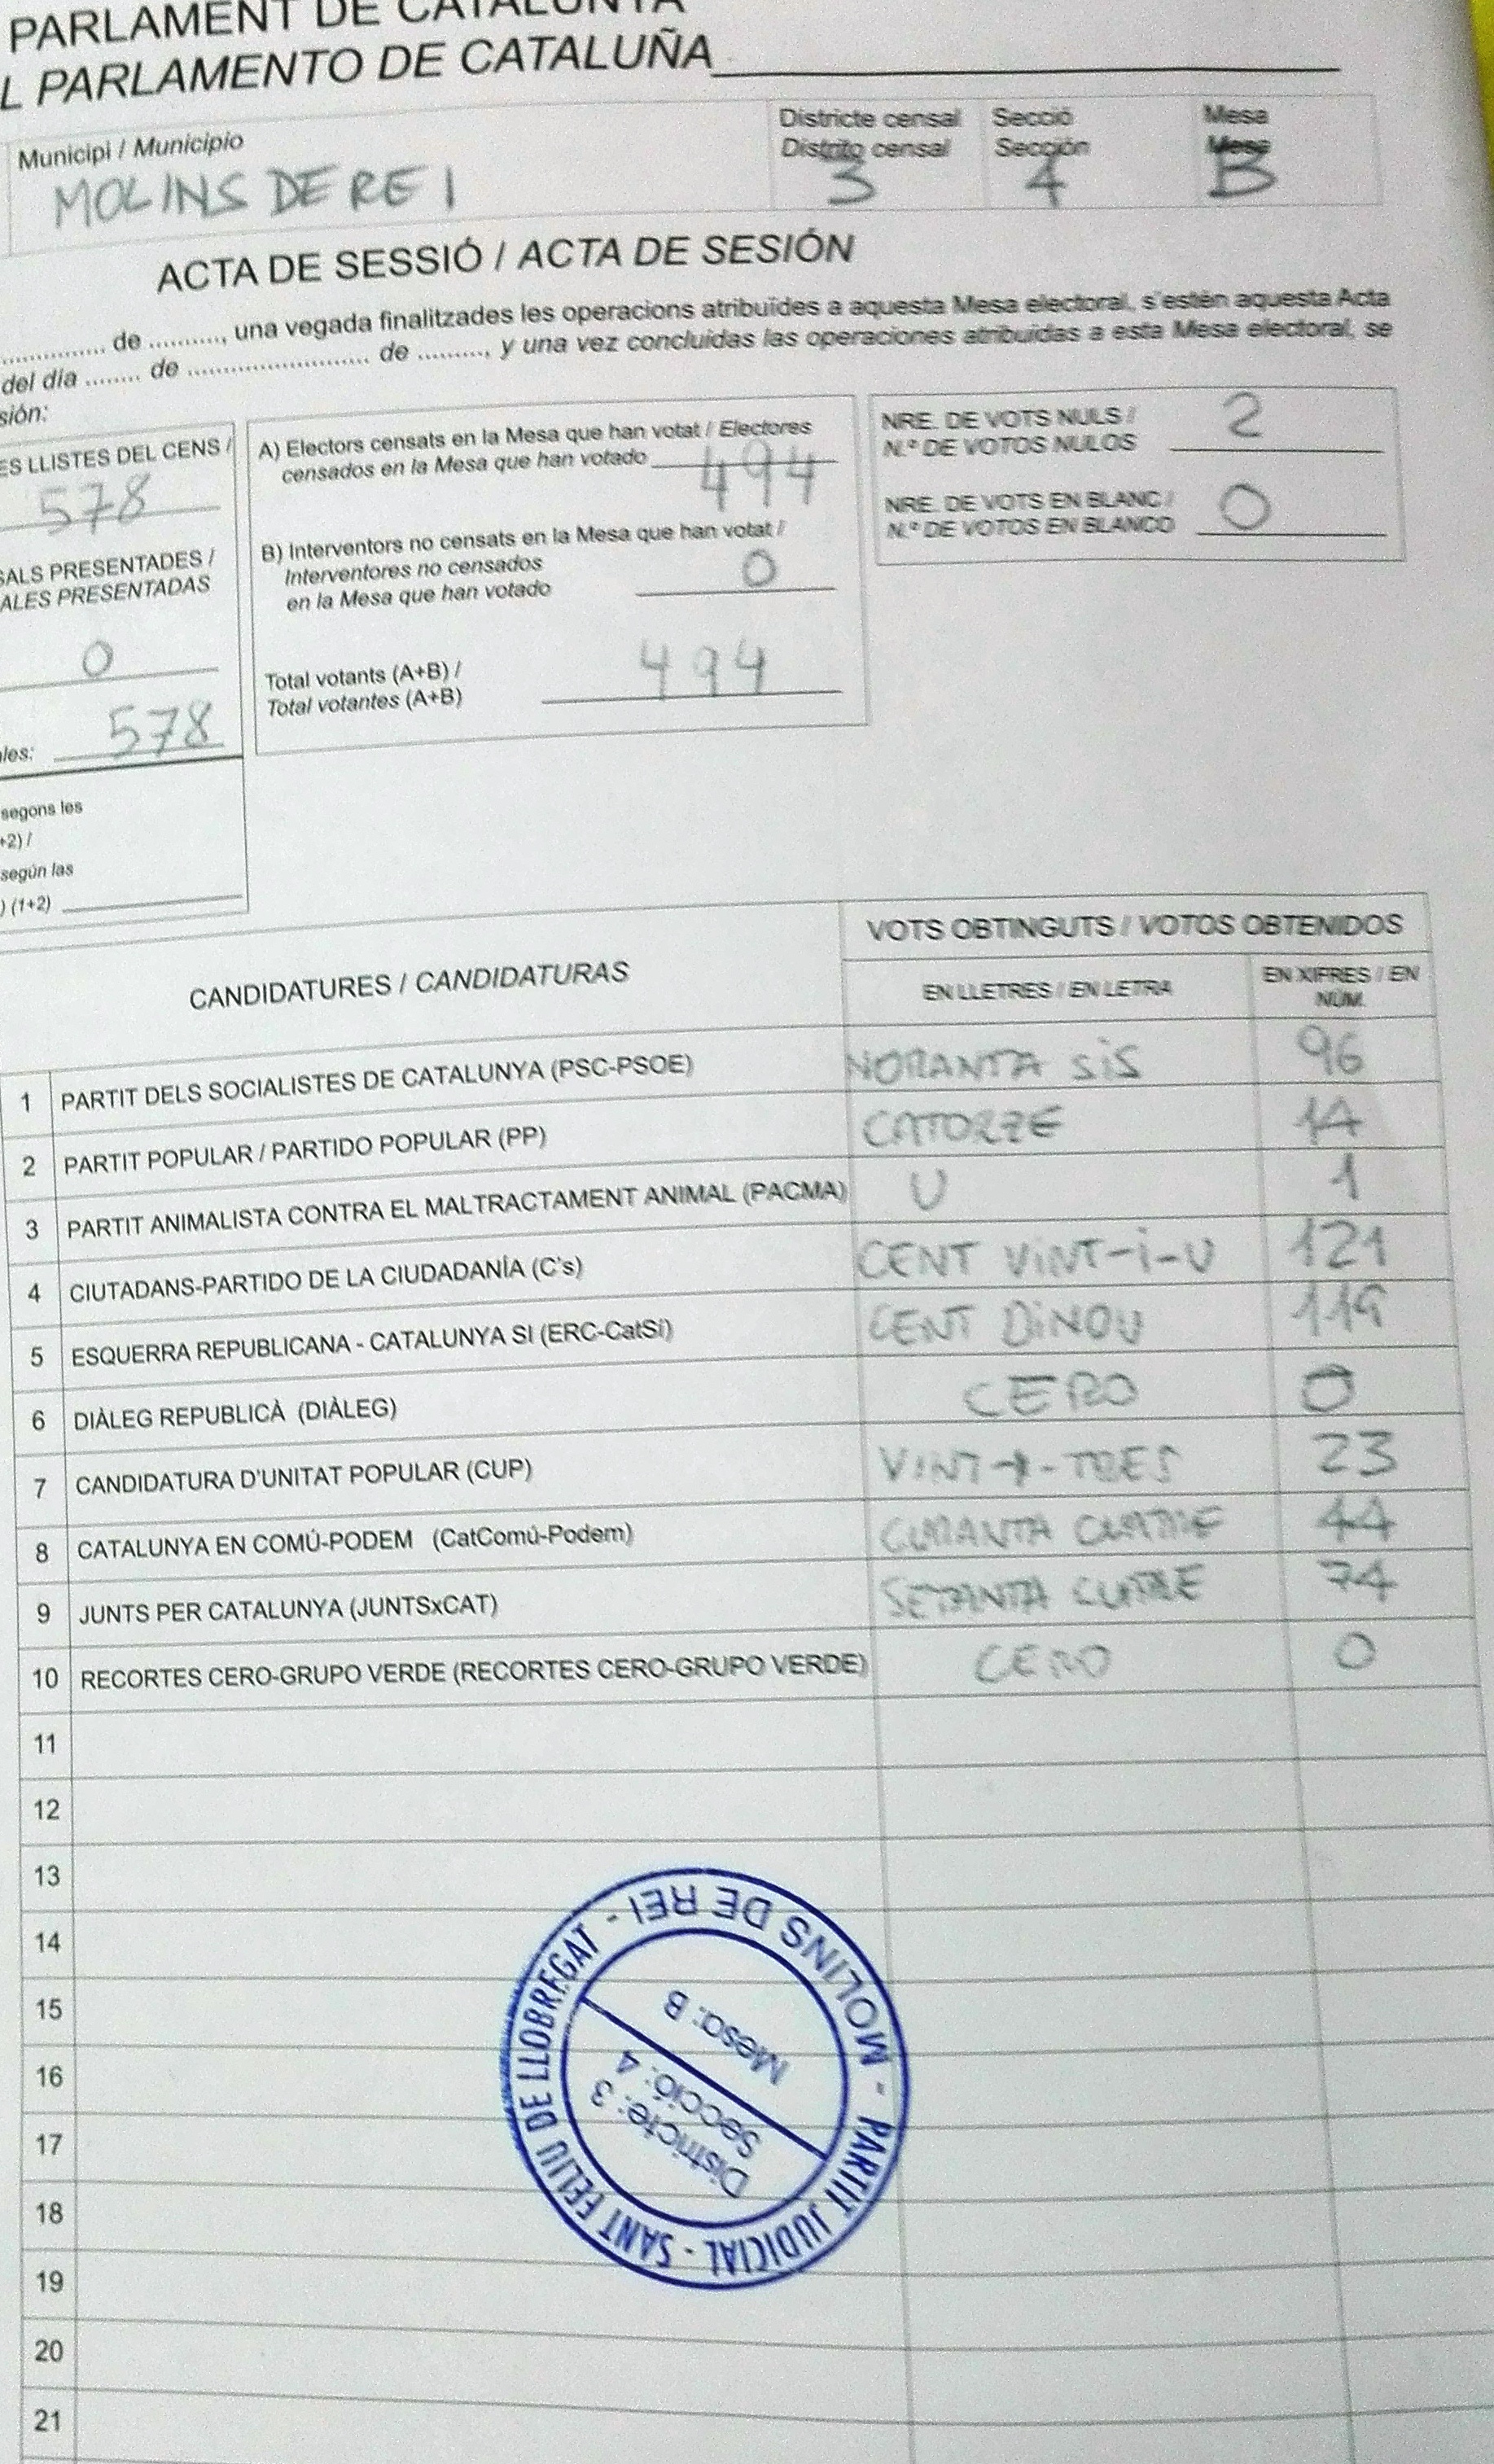 PARLAMENT DE CATALUNYA
L PARLAMENTO DE CATALUÑA
Municipi / Municipio
MOLINS DE REI
Districte censal
Distrito censal
3
Secció
Sección
4
Mesa
Mesa
B
ACTA DE SESSIÓ / ACTA DE SESIÓN
............... de .........., una vegada finalitzades les operacions atribuïdes a aquesta Mesa electoral, s'estén aquesta Acta
del día ........ de ......................... de ........., y una vez concluidas las operaciones atribuidas a esta Mesa electoral, se
sión:
ES LLISTES DEL CENS /
578
SALS PRESENTADES /
ALES PRESENTADAS
0
ales: 578
segons les
+2) /
según las
) (1+2)
A) Electors censats en la Mesa que han votat / Electores
censados en la Mesa que han votado 494
B) Interventors no censats en la Mesa que han votat /
Interventores no censados
en la Mesa que han votado 0
Total votants (A+B) /
Total votantes (A+B) 494
NRE. DE VOTS NULS /
N.º DE VOTOS NULOS 2
NRE. DE VOTS EN BLANC /
N.º DE VOTOS EN BLANCO 0
CANDIDATURES / CANDIDATURAS
VOTS OBTINGUTS / VOTOS OBTENIDOS
EN LLETRES / EN LETRA
EN XIFRES / EN
NÚM.
1 PARTIT DELS SOCIALISTES DE CATALUNYA (PSC-PSOE) NORANTA SIS 96
2 PARTIT POPULAR / PARTIDO POPULAR (PP) CATORZE 14
3 PARTIT ANIMALISTA CONTRA EL MALTRACTAMENT ANIMAL (PACMA) U 1
4 CIUTADANS-PARTIDO DE LA CIUDADANÍA (C's) CENT VINT-i-U 121
5 ESQUERRA REPUBLICANA - CATALUNYA SI (ERC-CatSí) CENT DINOU 119
6 DIÀLEG REPUBLICÀ (DIÀLEG) CERO 0
7 CANDIDATURA D'UNITAT POPULAR (CUP) VINT-i-TRES 23
8 CATALUNYA EN COMÚ-PODEM (CatComú-Podem) CURANTA CUATRE 44
9 JUNTS PER CATALUNYA (JUNTSxCAT) SETANTA CUATRE 74
10 RECORTES CERO-GRUPO VERDE (RECORTES CERO-GRUPO VERDE) CERO 0
11
12
13
14
15
16
17
18
19
20
21
MOLINS DE REI - PARTIT JUDICIAL - SANT FELIU DE LLOBREGAT -
Districte: 3
Secció: 4
Mesa: B